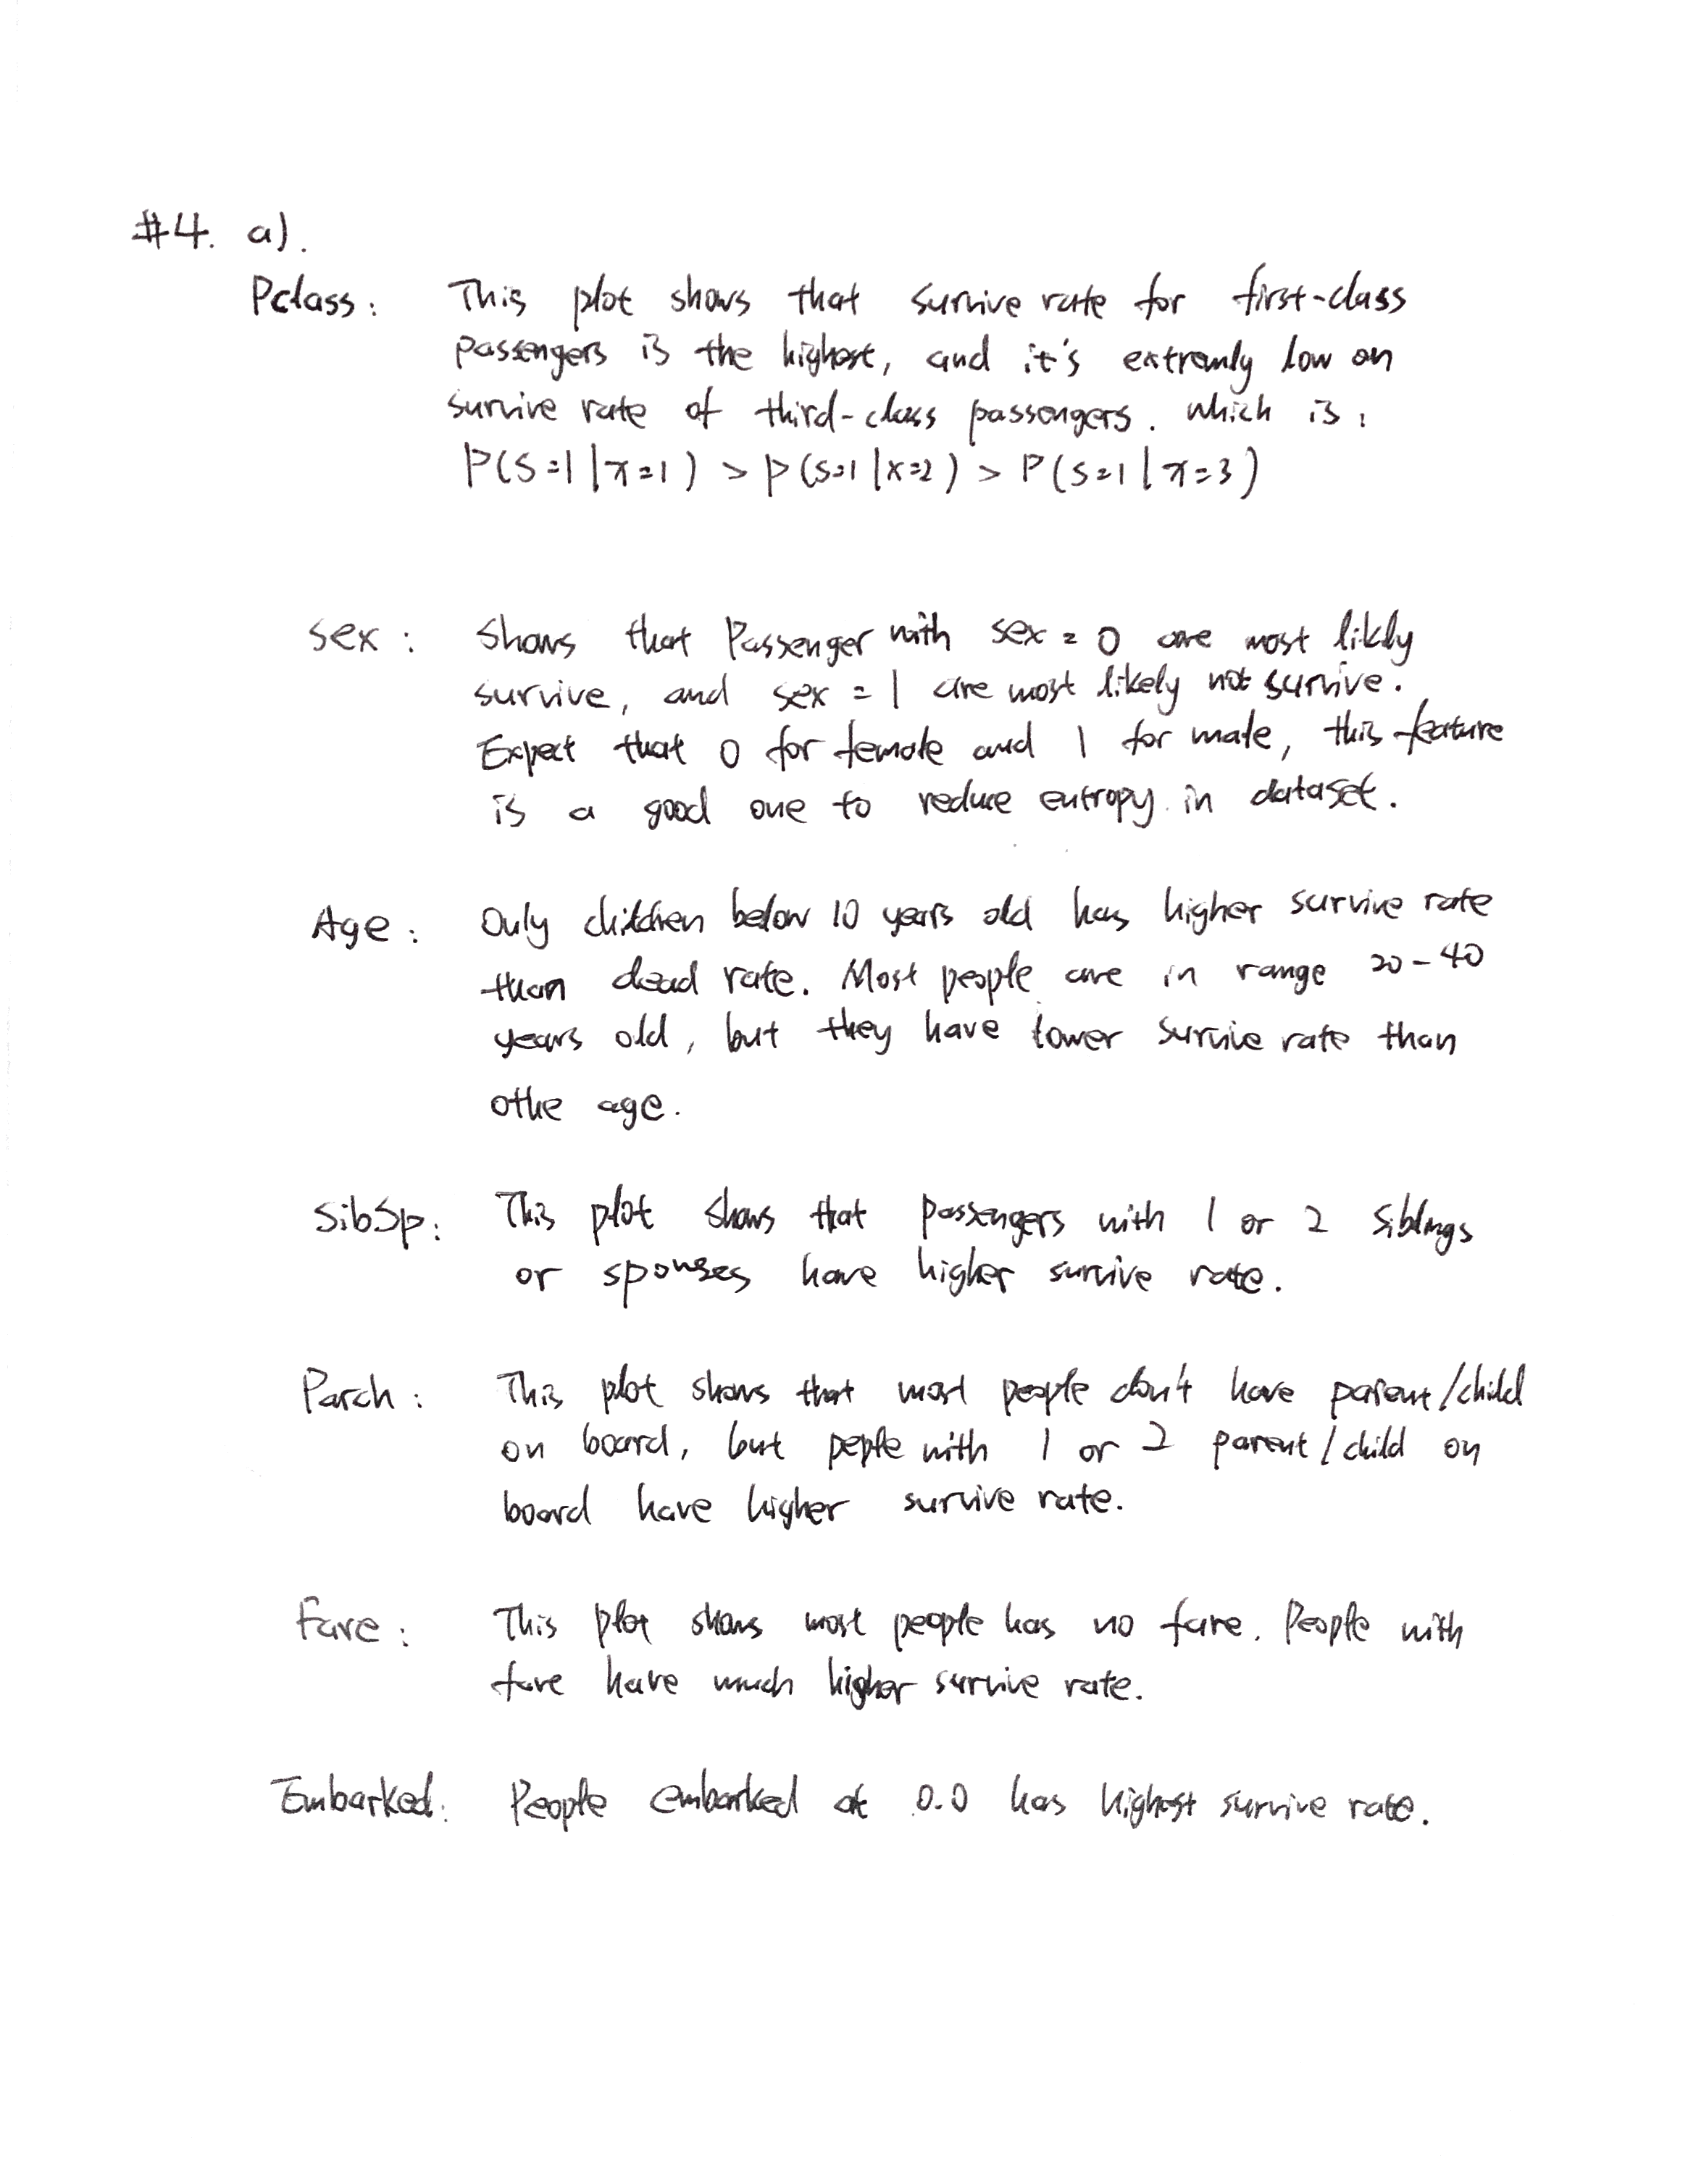 #4. a).
Pclass: This plot shows that survive rate for first-class
passengers is the highest, and it's extremly low on
survive rate of third-class passengers. which is:
P(S=1|x=1) > P(S=1|x=2) > P(S=1|x=3)
sex: Shows that Passenger with sex = 0 are most likly
survive, and sex = 1 are most likely not survive.
Expect that 0 for female and 1 for male, this feature
is a good one to reduce entropy in dataset.
Age: Only children below 10 years old has higher survive rate
than dead rate. Most people are in range 20-40
years old, but they have lower survive rate than
othe age.
SibSp: This plot shows that passengers with 1 or 2 siblings
or spouses have higher survive rate.
Parch: This plot shows that most people don't have parent/child
on board, but peple with 1 or 2 parent/child on
board have higher survive rate.
Fare: This plot shows most people has no fare. People with
fare have much higher survive rate.
Embarked: People embarked at 0.0 has highest survive rate.